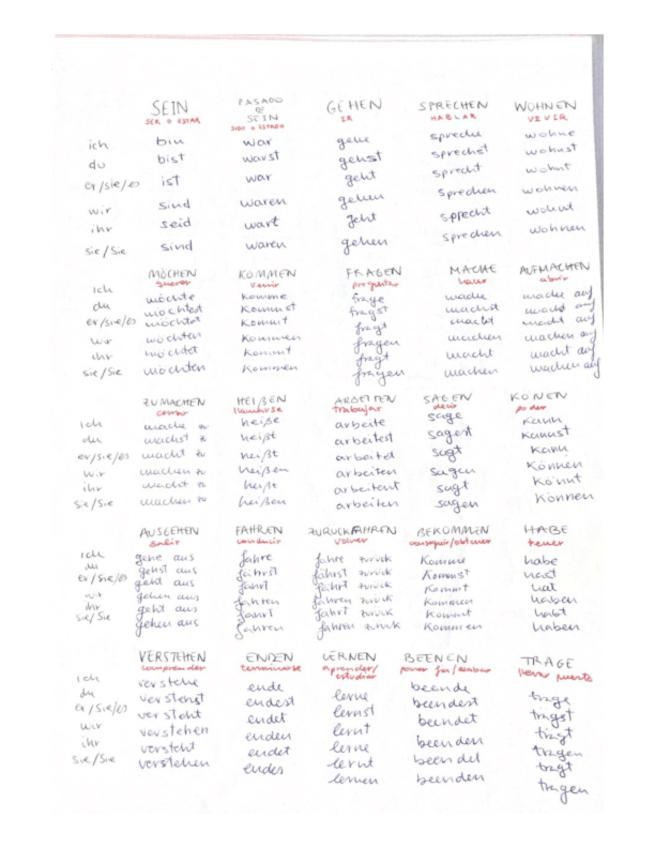 SEIN PASADO DE SEIN GEHEN SPRECHEN WOHNEN
SER O ESTAR SIDO O ESTADO IR HABLAR VIVIR
ich bin war gehe spreche wohne
du bist warst gehst sprechst wohnst
er/sie/es ist war geht sprecht wohnt
wir sind waren gehen sprechen wohnen
ihr seid wart geht sprecht wohnt
sie/Sie sind waren gehen sprechen wohnen
MÖCHEN KOMMEN FRAGEN MACHE AUFMACHEN
querer venir preguntar hacer abrir
ich möchte komme frage mache mache auf
du möchtest kommst fragst machst machst auf
er/sie/es möchtet kommt fragt macht macht auf
wir möchten kommen fragen machen machen auf
ihr möchtet kommt fragt macht macht auf
sie/Sie möchten kommen fragen machen machen auf
ZUMACHEN HEIßEN ARBEITEN SAGEN KÖNEN
cerrar llamarse trabajar decir poder
ich mache zu heiße arbeite sage kann
du machst zu heißt arbeitest sagest kannst
er/sie/es macht zu heißt arbeitet sagt kann
wir machen zu heißen arbeiten sagen können
ihr macht zu heißt arbeitent sagt könnt
sie/Sie machen zu heißen arbeiten sagen können
AUSGEHEN FAHREN ZURÜCKFAHREN BEKOMMEN HABE
salir conducir volver conseguir/obtener tener
ich gehe aus fahre fahre zurück komme habe
du gehst aus fährst fährst zurück kommst hast
er/sie/es geht aus fährt fährt zurück kommt hat
wir gehen aus fahren fahren zurück kommen haben
ihr geht aus fahrt fahrt zurück kommt habt
sie/Sie gehen aus fahren fahren zurück kommen haben
VERSTEHEN ENDEN LERNEN BEENEN TRAGE
comprender terminarse aprender/estudiar poner fin/acabar llevar puesto
ich verstehe ende lerne beende trage
du verstehst endest lernst beendest trägst
er/sie/es versteht endet lernt beendet trägt
wir verstehen enden lerne beenden tragen
ihr versteht endet lernt beendet tragt
sie/Sie verstehen enden lernen beenden tragen